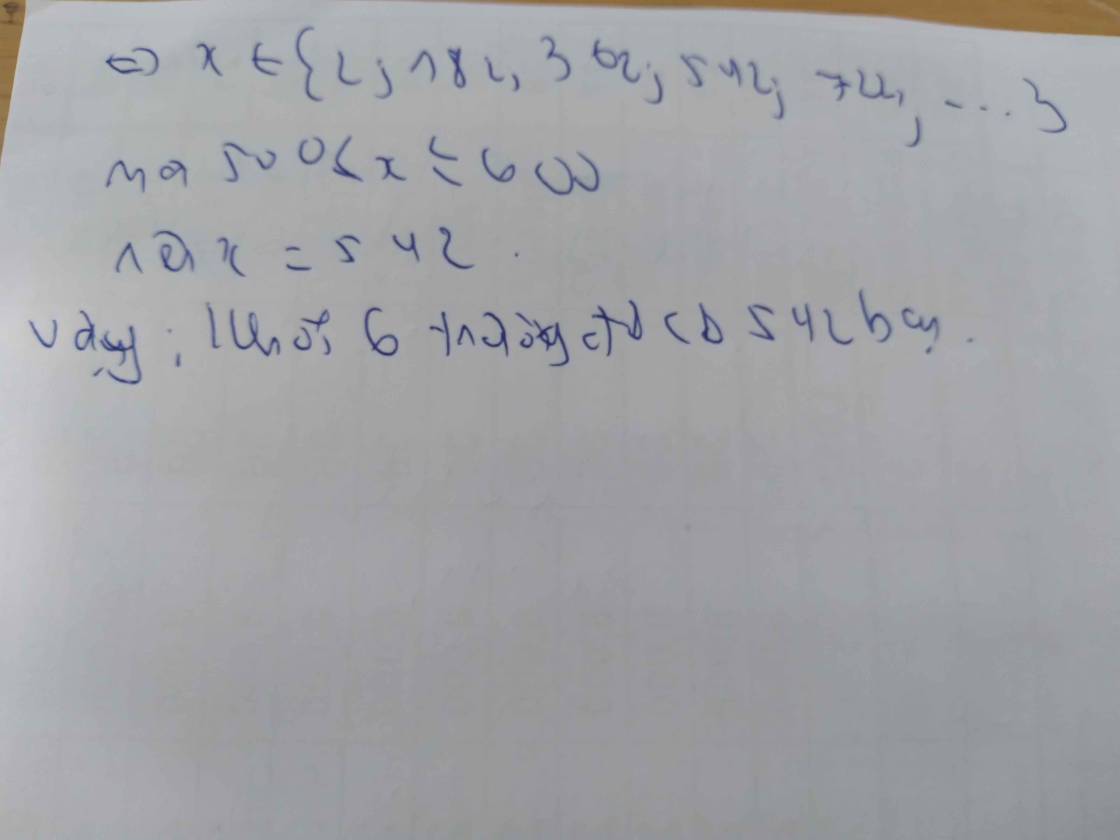 ⇔ x ∈ {2; 182, 362; 542; 722, ...}
mà 500 ≤ x ≤ 600
nên x = 542.
Vậy: Khối 6 trường đó có 542 bạn.